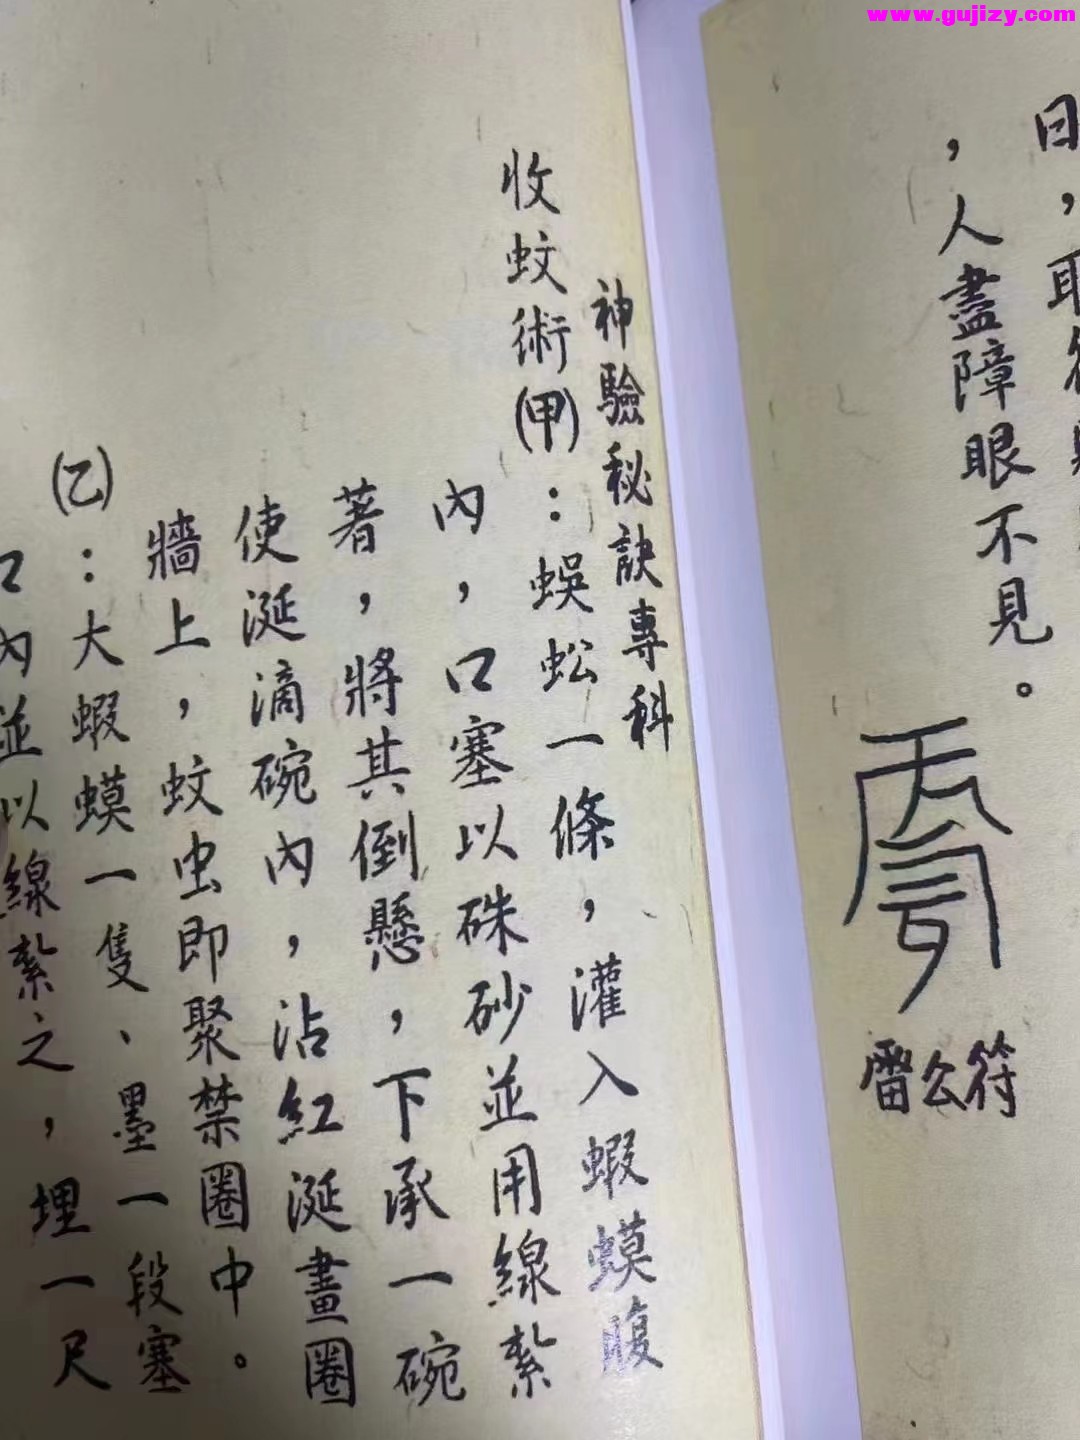 www.gujizy.com
日，取符
，人盡障眼不見。
雷公符
神驗秘訣專科
收蚊術(甲)：蜈蚣一條，灌入蝦蟆腹
內，口塞以硃砂並用線紮
著，將其倒懸，下承一碗
使涎滴碗內，沾紅涎畫圈
牆上，蚊虫即聚禁圈中。
(乙)：大蝦蟆一隻、墨一段塞
口內並以線紮之，埋一尺